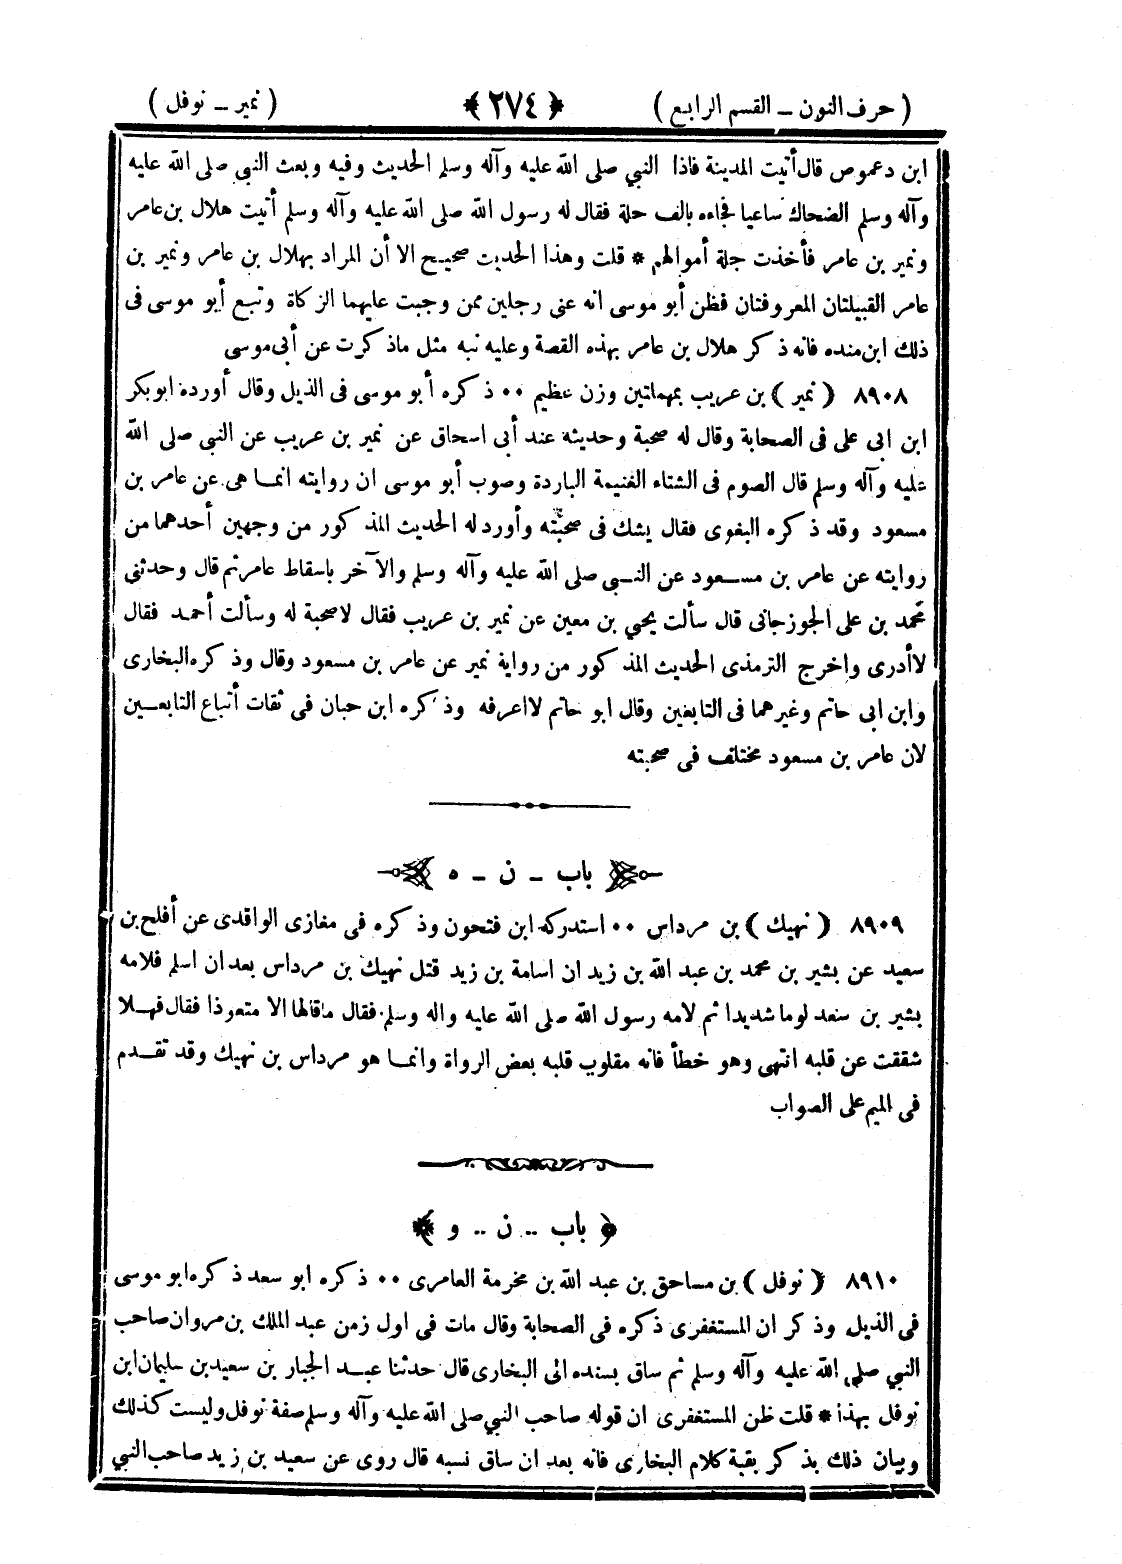 ( حرف النون ــ القسم الرابع ) ﴿ ٢٧٤ ﴾ ( نمير ــ نوفل )
ابن دعموص قال أتيت المدينة فاذا النبي صلى الله عليه وآله وسلم الحديث وفيه وبعث النبي صلى الله عليه
وآله وسلم الضحاك ساعيا فجاءه بالف حلة فقال له رسول الله صلى الله عليه وآله وسلم أتيت هلال بن عامر
ونمير بن عامر فأخذت جلة أموالهم * قلت وهذا الحديث صحيح الا أن المراد بهلال بن عامر ونمير بن
عامر القبيلتان المعروفتان فظن أبو موسى انه عنى رجلين ممن وجبت عليهما الزكاة وتبع أبو موسى فى
ذلك ابن منده فانه ذكر هلال بن عامر بهذه القصة وعليه نبه مثل ماذكرت عن أبى موسى
٨٩٠٨ ( نمير ) بن عريب بمهملتين وزن عظيم ٠٠ ذكره أبو موسى فى الذيل وقال أورده ابوبكر
ابن ابى على فى الصحابة وقال له صحبة وحديثه عند أبى اسحاق عن نمير بن عريب عن النبي صلى الله
عليه وآله وسلم قال الصوم فى الشتاء الغنيمة الباردة وصوب أبو موسى ان روايته انمـا هى عن عامر بن
مسعود وقد ذكره البغوى فقال يشك فى صحبته وأورد له الحديث المذكور من وجهين أحدهما من
روايته عن عامر بن مسـعود عن النـبي صلى الله عليه وآله وسلم والآخر باسقاط عامر ثم قال وحدثنى
محمد بن على الجوزجانى قال سألت يحيي بن معين عن نمير بن عريب فقال لاصحبة له وسألت أحمد فقال
لاأدرى واخرج الترمذى الحديث المذكور من رواية نمير عن عامر بن مسعود وقال وذكره البخارى
وابن ابى حاتم وغيرهما فى التابعين وقال ابو حاتم لااعرفه وذكره ابن حبان فى ثقات أتباع التابعـين
لان عامر بن مسعود مختلف فى صحبته
باب ــ ن ــ ه
٨٩٠٩ ( نهيك ) بن مرداس ٠٠ استدركه ابن فتحون وذكره فى مغازى الواقدى عن أفلح بن
سعيد عن بشير بن محمد بن عبد الله بن زيد ان اسامة بن زيد قتل نهيك بن مرداس بعد ان اسلم فلامه
بشير بن سعد لوما شديدا ثم لامه رسول الله صلى الله عليه واله وسلم فقال ماقالها الا متعوذا فقال فهـلا
شققت عن قلبه انتهى وهو خطأ فانه مقلوب قلبه بعض الرواة وانمـا هو مرداس بن نهيك وقد تقـدم
فى الميم على الصواب
﴿ باب .. ن .. و ﴾
٨٩١٠ ( نوفل ) بن مساحق بن عبد الله بن مخرمة العامرى ٠٠ ذكره ابو سعد ذكره ابو موسى
فى الذيل وذكر ان المستغفرى ذكره فى الصحابة وقال مات فى اول زمن عبد الملك بن مروان صاحب
النبي صلى الله عليه وآله وسلم ثم ساق بسنده الى البخارى قال حدثنا عبـد الجبار بن سعيد بن سليمان ابن
نوفل بهذا * قلت ظن المستغفرى ان قوله صاحب النبي صلى الله عليه وآله وسلم صفة نوفل وليست كذلك
وبيان ذلك بذكر بقية كلام البخارى فانه بعد ان ساق نسبه قال روى عن سعيد بن زيد صاحب النبي